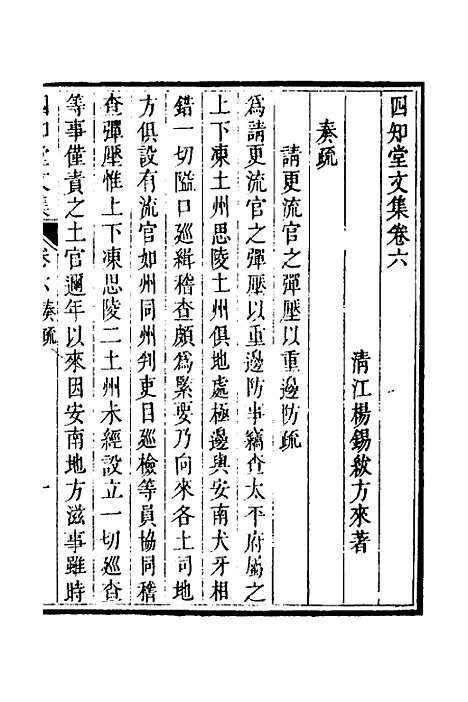 四知堂文集卷六
清江楊錫紱方來著
奏疏
請更流官之彈壓以重邊防疏
爲請更流官之彈壓以重邊防事竊查太平府屬之
上下凍土州思陵土州俱地處極邊與安南犬牙相
錯一切隘口廵緝稽查頗爲緊要乃向來各土司地
方俱設有流官如州同州判吏目廵檢等員協同稽
查彈壓惟上下凍思陵二土州未經設立一切廵查
等事僅責之土官邇年以來因安南地方滋事雖時
四知堂文集
卷六奏疏
一